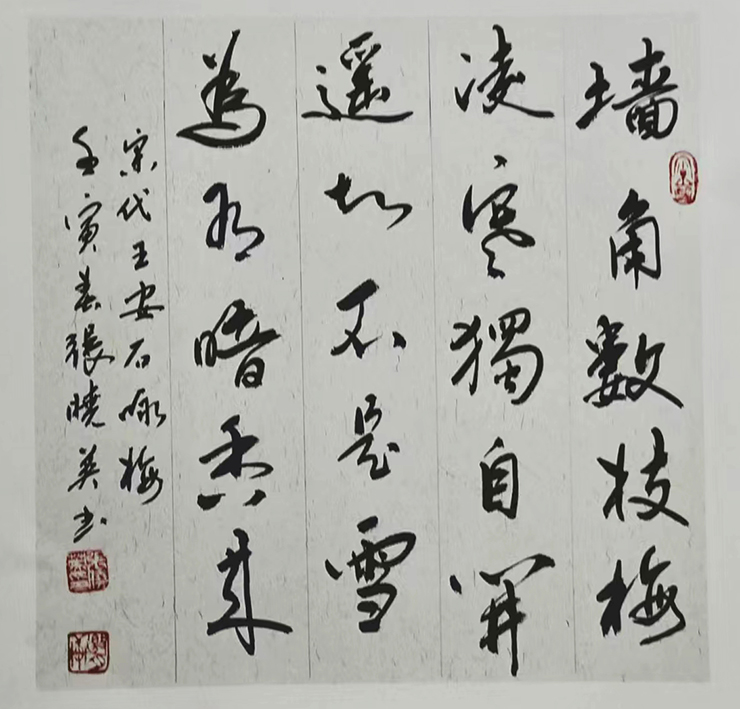 墙角數枝梅
凌寒獨自開
遥知不是雪
為有暗香来
宋代王安石咏梅
壬寅春張曉英书